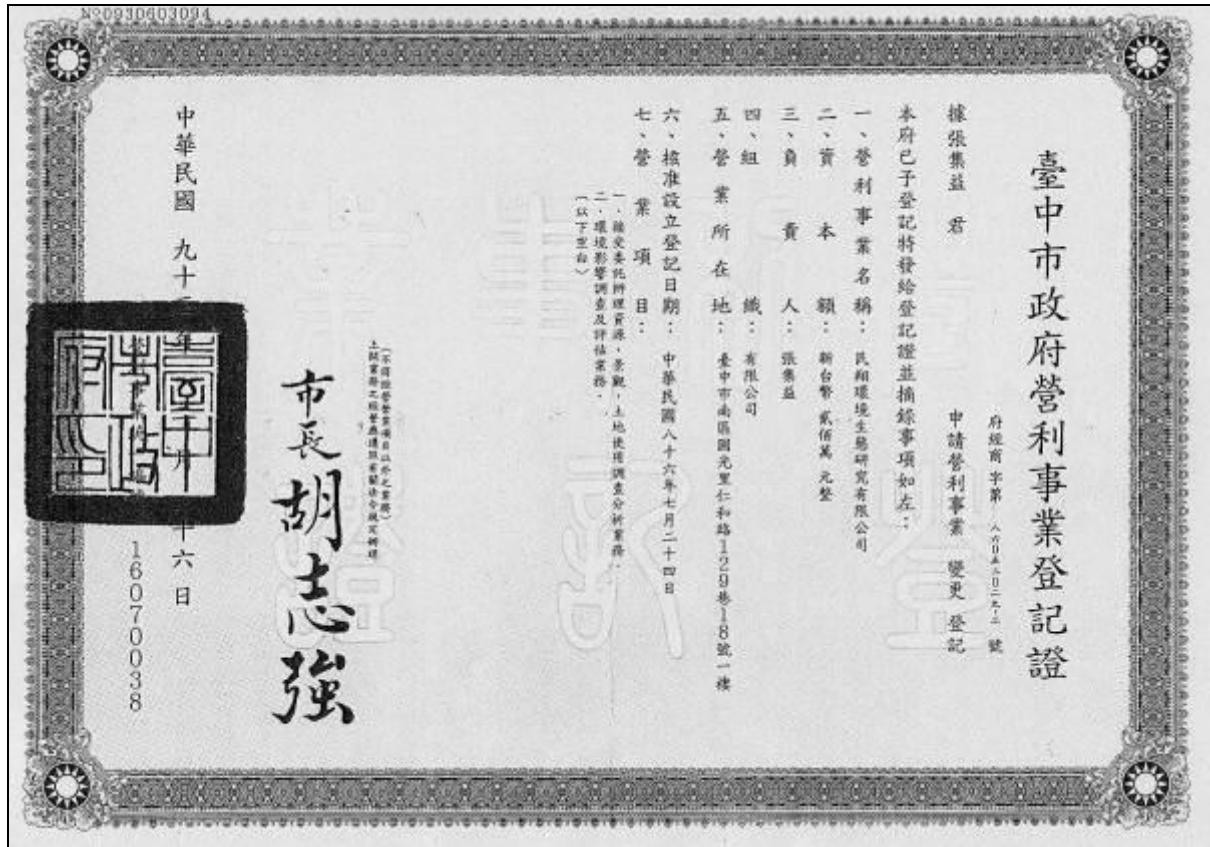 Nº0930603094
臺中市政府營利事業登記證
府經商 字第 號
據張集益 君 申請營利事業 變更 登記
本府已予登記特發給登記證並摘錄事項如左：
一、營利事業名稱：民翔環境生態研究有限公司
二、資本額：新台幣 貳佰萬 元整
三、負責人：張集益
四、組織：有限公司
五、營業所在地：臺中市南區國光里仁和路129巷18號一樓
六、核准設立登記日期：中華民國八十六年七月二十四日
七、營業項目：
一、接受委託辦理資源、景觀、土地使用調查分析業務．
二、環境影響調查及評估業務．
（以下空白）
（不得經營登記項目以外之業務）
上開業務之經營應遵照有關法令規定辦理
市長胡志強
中華民國 九十 年 月 十六 日
16070038
臺中市政府印